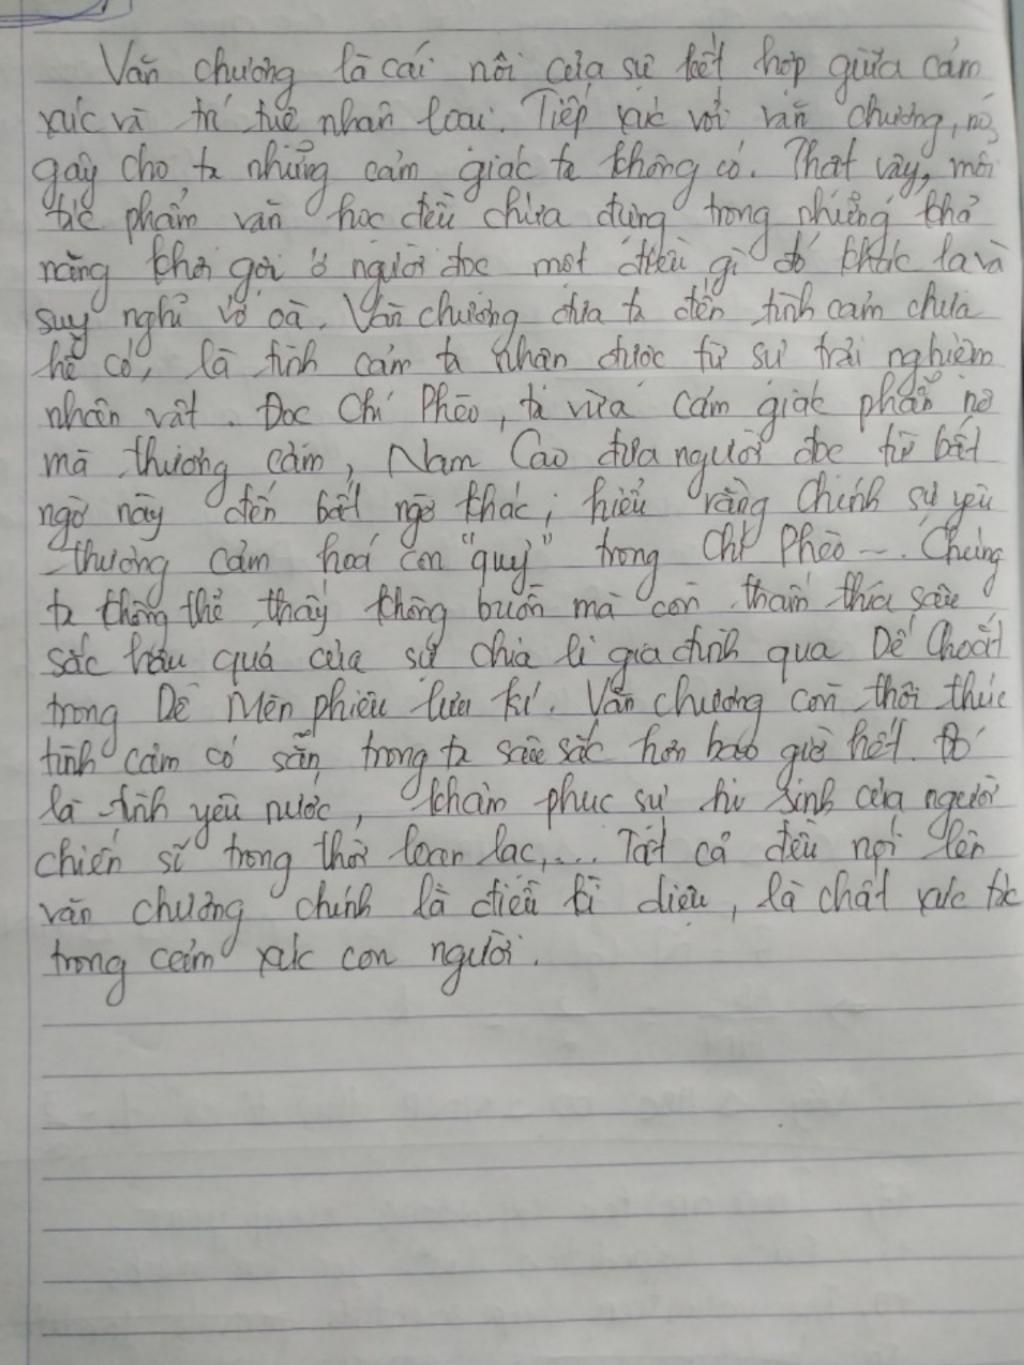 Văn chương là cái nôi của sự kết hợp giữa cảm
xúc và trí tuệ nhân loại. Tiếp xúc với văn chương, nó
gây cho ta những cảm giác ta không có. Thật vậy, mỗi
tác phẩm văn học đều chứa đựng trong những khả
năng khơi gợi ở người đọc một điều gì đó khác lạ và
suy nghĩ vỡ oà. Văn chương đưa ta đến tình cảm chưa
hề có, là tình cảm ta nhận được từ sự trải nghiệm
nhân vật. Đọc Chí Phèo, ta vừa cảm giác phẫn nộ
mà thương cảm, Nam Cao đưa người đọc từ bất
ngờ này đến bất ngờ khác; hiểu rằng chính sự yêu
thương cảm hoá con "quỷ" trong Chí Phèo .... Chúng
ta không thể thấy không buồn mà còn thấm thía sâu
sắc hậu quả của sự chia li gia đình qua Dế Choắt
trong Dế Mèn phiêu lưu kí. Văn chương còn thôi thúc
tình cảm có sẵn trong ta sâu sắc hơn bao giờ hết. Đó
là tình yêu nước, khâm phục sự hi sinh của người
chiến sĩ trong thời loạn lạc,... Tất cả đều nói lên
văn chương chính là điều kì diệu, là chất xúc tác
trong cảm xúc con người.